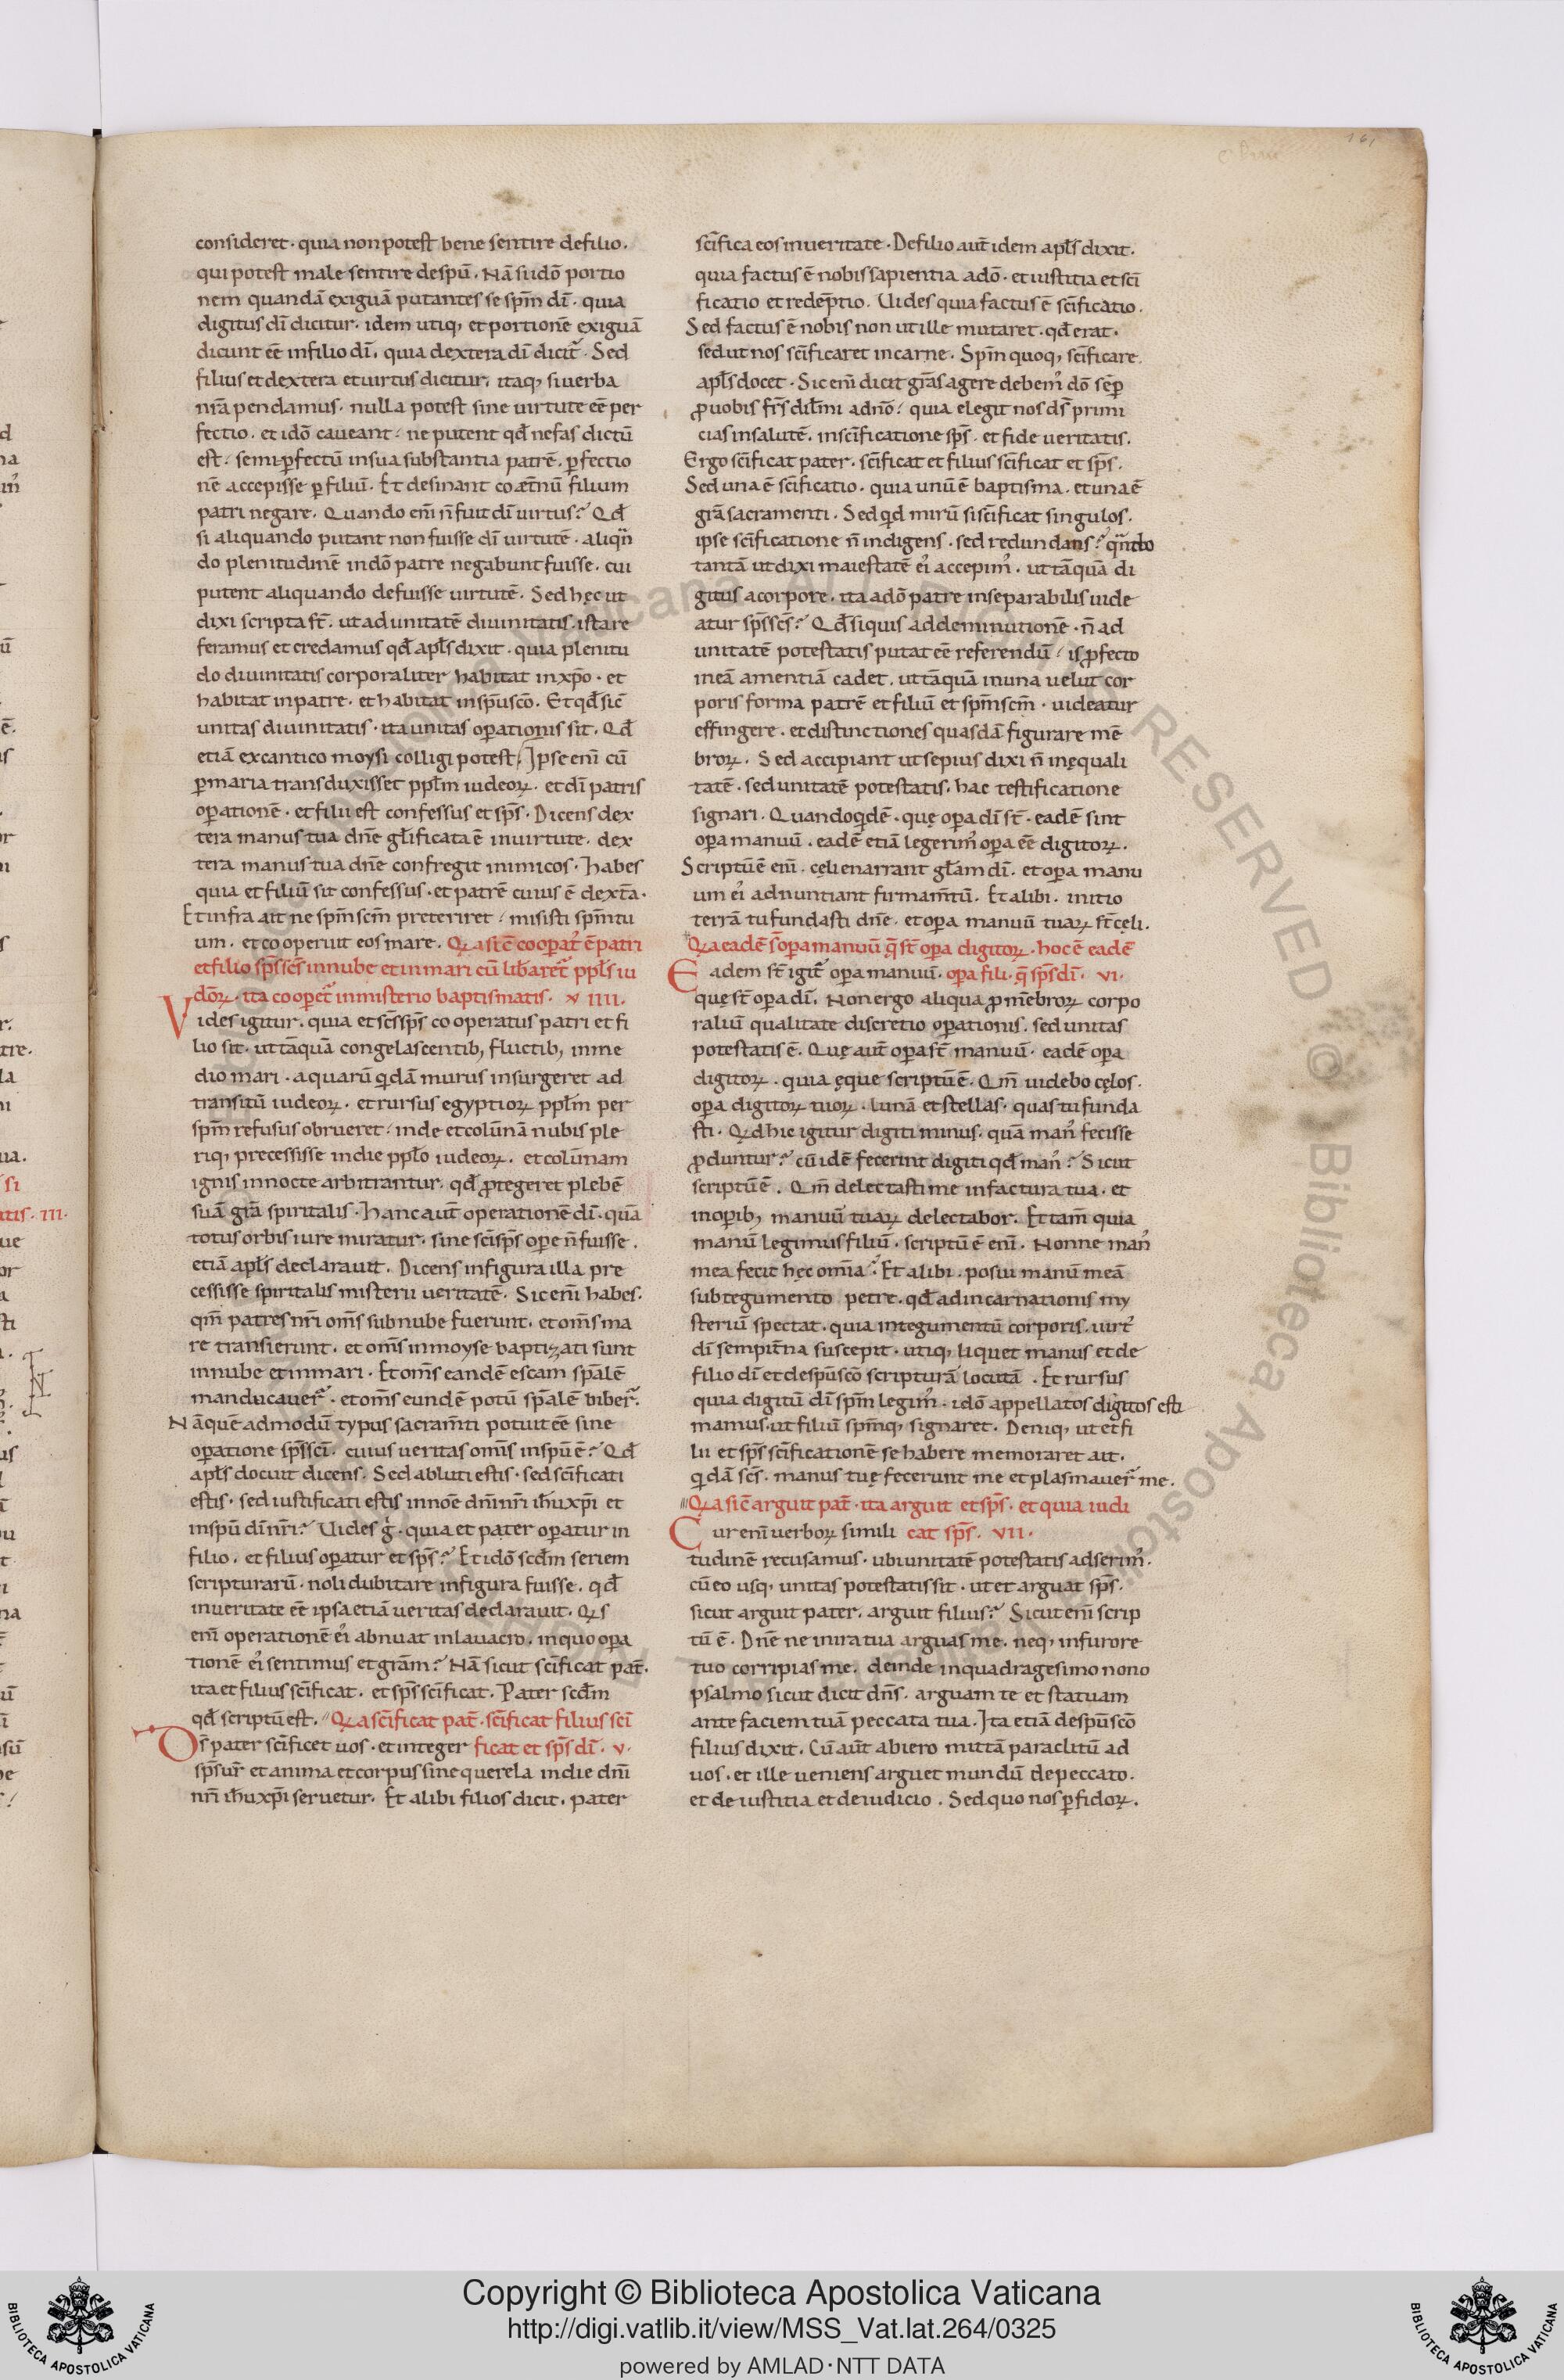 consideret · quia non potest bene sentire de filio ·
qui potest male sentire de spū · Nā si idō portio
nem quandā exiguā putantes se spm̄ dī · quia
digitus dī dicitur · idem utiq, et portionē exiguā
dicunt eē in filio dī, quia dextera dī dicit᷑ · Sed
filius et dextera et uirtus dicitur, itaq, si uerba
nrā pendamus · nulla potest sine uirtute eē per
fectio · et idō caueant · ne putent qđ nefas dictū
est · semiꝑfectū in sua substantia patrē · ꝑfectio
nē accepisse ꝑ filiū · Et desinant coæt̄nū filium
patri negare · Quando enī n̄ fuit dī uirtus? Qđ
si aliquando putant non fuisse dī uirtutē · aliqn̄
do plenitudinē in dō patre negabunt fuisse · cui
putent aliquando defuisse uirtutē · Sed hęc ut
dixi scripta st̄ · ut ad unitatē diuinitatis ista re
feramus et credamus qđ apl̄s dixit · quia plenitu
do diuinitatis corporaliter habitat in xp̄o · et
habitat in patre · et habitat in spū scō · Et qđ sic̄
unitas diuinitatis · ita unitas oꝑationis sit · Qđ
etiā ex cantico moysi colligi potest · Ipse enī cū
ꝑ maria transduxisset ppl̄m iudeoꝝ · et dī patris
oꝑationē · et filii est confessus et sp̄s · Dicens dex
tera manus tua dn̄e gl̄ificata ē in uirtute · dex
tera manus tua dn̄e confregit inimicos · Habes
quia et filiū sit confessus · et patrē cuius ē dext̄a ·
Et infra ait ne spm̄ scm̄ preteriret · misisti spm̄ tu
um · et cooperuit eos mare · Qꝛ a st̄ē cooꝑat᷑ ē patri
et filio sp̄s scs̄ in nube et in mari cū lib̄aret᷑ ppl̄s iu
dōꝝ · ita cooꝑet᷑ in misterio baptismatis · v IIII ·
Vides igitur · quia et scs̄ sp̄s cooperatus patri et fi
lio sit · ut tāquā congelascentib, fluctib, in me
dio mari · aquarū qdā murus insurgeret ad
transitū iudeoꝝ · et rursus egyptioꝝ ppl̄m per
spm̄ refusus obrueret · inde et colūnā nubis ple
riq, precessisse in die ppl̄o iudeoꝝ · et colūnam
ignis in nocte arbitrantur · qđ ꝓtegeret plebē
suā grā spiritalis · Hanc aut̄ operationē dī · quā
totus orbis iure miratur · sine scī sp̄s oꝑe n̄ fuisse ·
etiā apl̄s declarauit · Dicens in figura illa pre
cessisse spiritalis misterii ueritatē · Sic enī habes ·
qm̄ patres nr̄i om̄s sub nube fuerunt · et om̄s ma
re transierunt · et om̄s in moyse baptizati sunt
in nube et in mari · Et om̄s eandē escam spālē
manducauer᷑ · et om̄s eundē potū spālē biber᷑ ·
Nā quē admodū typus sacram̄ti potuit eē sine
oꝑatione sp̄s scī · cuius ueritas om̄s in spū ē? Qđ
apl̄s docuit dicens · Sed abluti estis · sed scīficati
estis · sed iustificati estis in noē dnī nr̄i ih̄u xp̄i et
in spū dī nr̄i? Vides g̊ · quia et pater oꝑatur in
filio · et filius oꝑatur et sp̄s? Et idō scđm seriem
scripturarū · noli dubitare in figura fuisse · qđ
in ueritate eē ipsa etiā ueritas declarauit · Qꝛs
enī operationē ei᷒ abnuat in lauacro · in quo oꝑa
tionē ei᷒ sentimus et grām? Nā sicut scīficat pat̄ ·
ita et filius scīficat · et sp̄s scīficat · Pater scđm
qđ scriptū est · Qꝛ a scīficat pat̄ · scīficat filius scī
Ds̄ pater scīficet uos · et integer ficat et sp̄s dī · v ·
sp̄s ur̄ et anima et corpus sine querela in die dnī
nr̄i ih̄u xp̄i seruetur · Et alibi filios dicit · pater
scīfica eos in ueritate · De filio aut̄ idem apl̄s dixit ·
quia factus ē nobis sapientia a dō · et iustitia et scī
ficatio et redēptio · Vides quia factus ē scīficatio ·
Sed factus ē nobis non ut ille mutaret · qđ erat ·
sed ut nos scīficaret in carne · Spm̄ quoq, scīficare
apl̄s docet · Sic enī dicit grās agere debem᷒ dō sēꝑ
ꝓ uobis frs̄ dil̄mi a dnō · quia elegit nos ds̄ primi
cias in salutē · in scīficatione sp̄s · et fide ueritatis ·
Ergo scīficat pater · scīficat et filius scīficat et sp̄s ·
Sed una ē scīficatio · quia unū ē baptisma · et una ē
grā sacramenti · Sed qd mirū si scīficat singulos ·
ipse scīficatione n̄ indigens · sed redundans? qn̄do
tantā ut dixi maiestatē ei᷒ accepim᷒ · ut tāquā di
gitus a corpore · ita a dō patre inseparabilis uide
atur sp̄s scs̄? Qđ si quis ad deminutionē · n̄ ad
unitatē potestatis putat eē referendū · is ꝓfecto
in eā amentiā cadet · ut tāquā in una uelut cor
poris forma patrē et filiū et spm̄ scm̄ · uideatur
effingere · et distinctiones quasdā figurare mē
broꝝ · Sed accipiant ut sepius dixi n̄ inęquali
tatē · sed unitatē potestatis · hac testificatione
signari · Quandoqdē · quę oꝑa dī st̄ · eadē sint
oꝑa manuū · eadē etiā legerim᷒ oꝑa eē digitoꝝ ·
Scriptū ē enī · cęli enarrant gl̄am dī · et oꝑa manu
um ei᷒ adnuntiant firmam̄tū · Et alibi · initio
terrā tu fundasti dn̄e · et oꝑa manuū tuaꝝ st̄ cęli ·
Qꝛ a eadē s̄ oꝑa manuū q̄ st̄ oꝑa digitoꝝ · hoc ē eadē
Eadem st̄ igit᷑ oꝑa manuū · oꝑa fili · q̄ sp̄s dī · vi ·
quę st̄ oꝑa dī · Non ergo aliqua ꝓ mēbroꝝ corpo
raliū qualitate discretio oꝑationis · sed unitas
potestatis ē · Quę aut̄ oꝑa st̄ manuū · eadē oꝑa
digitoꝝ · quia ęque scriptū ē · Qm̄ uidebo cęlos ·
oꝑa digitoꝝ tuoꝝ · lunā et stellas · quas tu funda
sti · Qꝛd hic igitur digiti minus · quā man᷒ fecisse
ꝓduntur? cū idē fecerint digiti qđ man᷒? Sicut
scriptū ē · Qm̄ delectasti me in factura tua · et
in oꝑib, manuū tuaꝝ delectabor · Et tam̄ quia
manū legimus filiū · scriptū ē enī · Nonne man᷒
mea fecit hęc om̄ia? Et alibi · posui manū meā
sub tegumento petre · qđ ad incarnationis my
steriū spectat · quia integumentū corporis · uirt᷒
dī sempit̄na suscepit · utiq, liquet manus et de
filio dī et de spū scō scripturā locutā · Et rursus
quia digitū dī spm̄ legim᷒ · idō appellatos digitos esti
mamus · ut filiū spm̄q, signaret · Deniq, ut et fi
lii et sp̄s scīficationē se habere memoraret ait ·
qdā scs̄ · manus tuę fecerunt me et plasmauer᷑ me ·
Qꝛ a sic̄ arguit pat̄ · ita arguit et sp̄s · et quia iudi
Cur enī uerboꝝ simili cat sp̄s · vii ·
tudinē recusamus · ubi unitatē potestatis adserim᷒ ·
cū eo usq, unitas potestatis sit · ut et arguat sp̄s ·
sicut arguit pater · arguit filius? Sicut enī scrip
tū ē · Dn̄e ne in ira tua arguas me · neq, in furore
tuo corripias me · deinde in quadragesimo nono
psalmo sicut dicit dn̄s · arguam te et statuam
ante faciem tuā peccata tua · Ita etiā de spū scō
filius dixit · Cū aut̄ abiero mittā paraclitū ad
uos · et ille ueniens arguet mundū de peccato ·
et de iustitia et de iudicio · Sed quo nos ꝑfidoꝝ ·
Copyright © Biblioteca Apostolica Vaticana
http://digi.vatlib.it/view/MSS_Vat.lat.264/0325
powered by AMLAD · NTT DATA
BIBLIOTECA APOSTOLICA VATICANA
BIBLIOTECA APOSTOLICA VATICANA